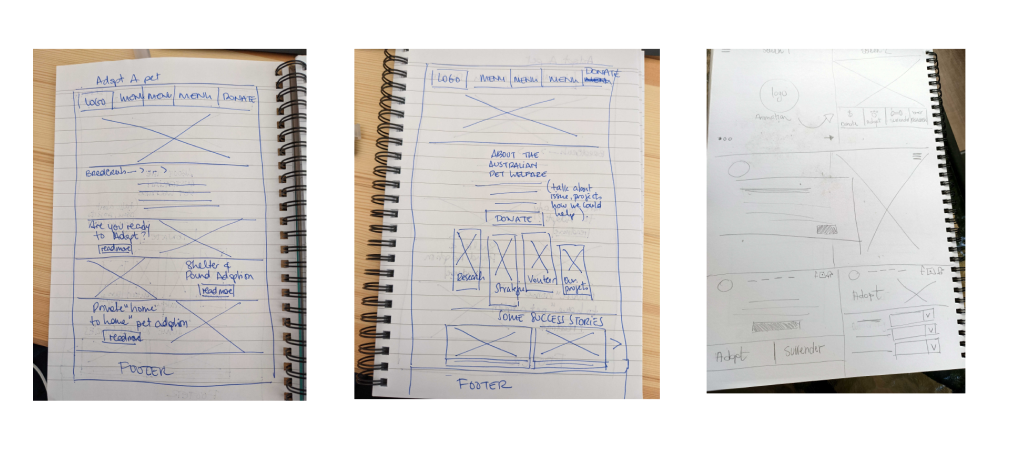 Adopt A pet
LOGO MENU MENU MENU DONATE
BREADCRUMB
Are you ready
to Adopt?
readmore
Shelter &
Pound Adoption
readmore
Private "home
to home" pet adoption
readmore
FOOTER
LOGO MENU MENU MENU DONATE
ABOUT THE
AUSTRALIAN
PET WELFARE
(talk about
issue, projects
how we could
help).
DONATE
Research
Our
projects
SOME SUCCESS STORIES
>
FOOTER
logo
animation
donate
adopt
Adopt
Adopt
Surrender